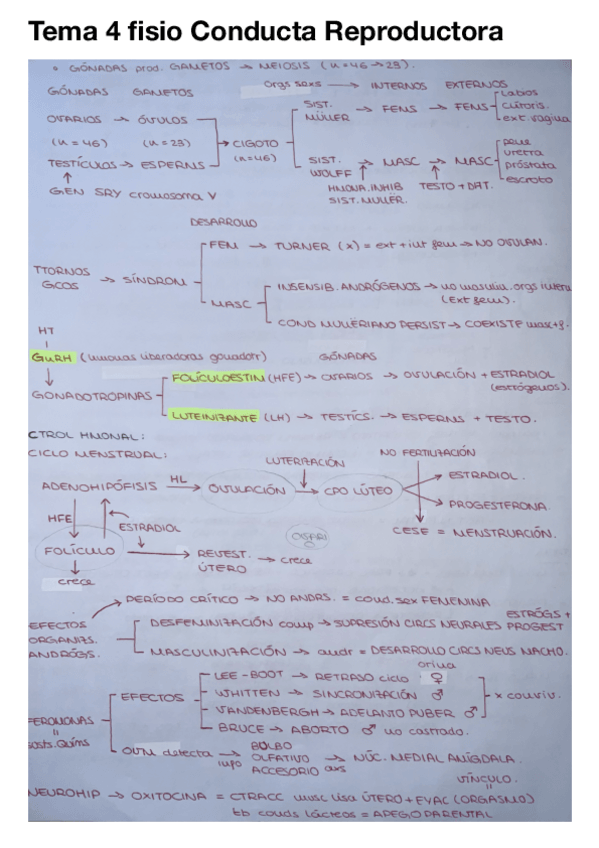 Tema 4 fisio Conducta Reproductora
• GÓNADAS prod. GAMETOS → MEIOSIS (n=46→23).
GÓNADAS GAMETOS Orgs sexs → INTERNOS EXTERNOS
OVARIOS → ÓVULOS SIST. MÜLLER → FEMS → FEMS labios
clítoris.
ext. vagina
(n=46) (n=23) → CIGOTO
(n=46)
TESTÍCULOS → ESPERMS SIST. WOLFF → MASC → MASC pene
uretra
próstata
escroto
↑ HMONA. INHIB SIST. MULLER. TESTO + DHT.
GEN SRY cromosoma Y
DESARROLLO
FEM → TURNER (X) = ext + int fem → NO OVULAN.
TTORNOS GCOS → SÍNDROM
MASC INSENSIB. ANDRÓGENOS → no masculin. orgs
(Ext fem).
COND MULLERIANO PERSIST → COEXISTE masc+f.
HT
↓
GnRH (hmonas liberadoras gonadotr) GÓNADAS
↓
GONADOTROPINAS FOLÍCULOESTIN (HFE) → OVARIOS → OVULACIÓN + ESTRADIOL
(estrógenos).
LUTEINIZANTE (LH) → TESTÍCS. → ESPERMS + TESTO.
CTROL HMONAL:
CICLO MENSTRUAL: LUTERIZACIÓN NO FERTILIZACIÓN
ADENOHIPÓFISIS HL → OVULACIÓN → CPO LÚTEO → ESTRADIOL.
→ PROGESTERONA.
HFE ESTRADIOL CESE = MENSTRUACIÓN.
FOLÍCULO → REVEST. ÚTERO → crece
crece
PERÍODO CRÍTICO → NO ANDRS. = cond. sex FEMENINA
EFECTOS ORGANIZS. ANDRÓGS. DESFEMINIZACIÓN comp → SUPRESIÓN CIRCS NEURALES ESTRÓGS + PROGEST
MASCULINIZACIÓN → andr = DESARROLLO CIRCS NEUS MACHO.
orina
FEROMONAS
=
susts. Químs
EFECTOS LEE-BOOT → RETRASO ciclo ♀
WHITTEN → SINCRONIZACIÓN ♂
VANDENBERGH → ADELANTO PUBER ♂
x conviv.
BRUCE → ABORTO ♂ no castrado.
OVN detecta → info BULBO OLFATIVO ACCESORIO → axs NÚC. MEDIAL AMÍGDALA.
VÍNCULO.
NEUROHIP → OXITOCINA = CTRACC musc lisa ÚTERO + EYAC (ORGASMO)
tb conds lácteos = APEGO PARENTAL